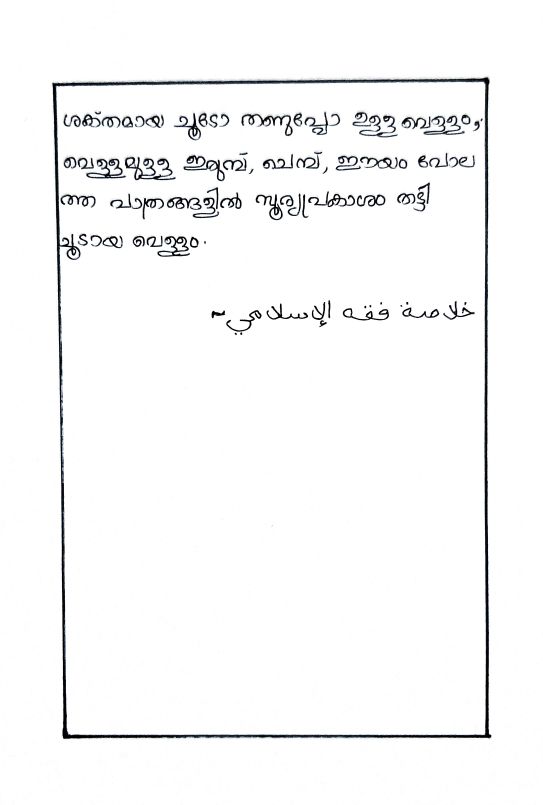 ശക്തമായ ചൂടോ തണുപ്പോ ഉള്ള വെള്ളം,
വെള്ളമുള്ള ഇരുമ്പ്, ചെമ്പ്, ഈയം പോല
ത്ത പാത്രങ്ങളിൽ സൂര്യപ്രകാശം തട്ടി
ചൂടായ വെള്ളം.
خلاصة فقه الإسلامي~